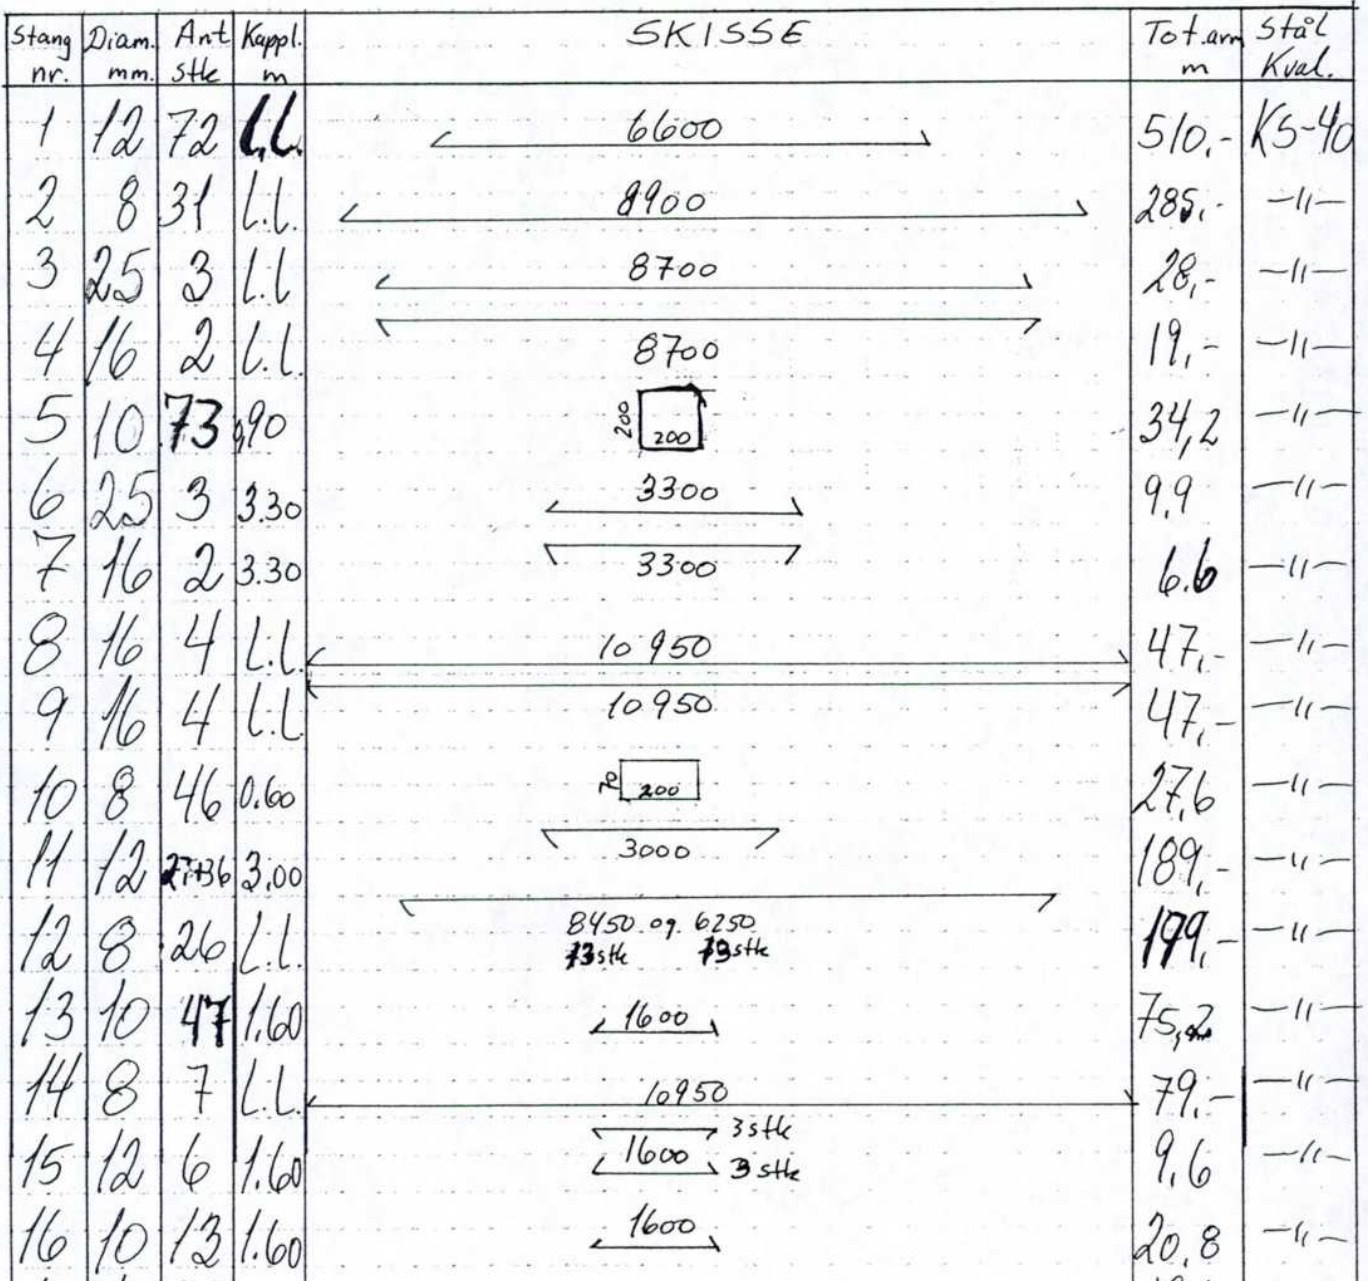 Stang nr. Diam. mm. Ant stk Kappl. m SKISSE Tot.arm m Stål Kval.
1 12 72 L.L. 6600 510,- KS-40
2 8 31 L.L. 8900 285,- -11-
3 25 3 L.L 8700 28,- -11-
4 16 2 L.L. 8700 19,- -11-
5 10 73 0,90 200 200 34,2 -11-
6 25 3 3.30 3300 9,9 -11-
7 16 2 3.30 3300 6.6 -11-
8 16 4 L.L. 10 950 47,- -11-
9 16 4 L.L 10950 47,- -11-
10 8 46 0.60 70 200 27,6 -11-
11 12 27+36 3,00 3000 189,- -11-
12 8 26 L.L. 8450 og. 6250 179,- -11-
13stk 13stk
13 10 47 1.60 1600 75,2 -11-
14 8 7 L.L. 10950 79,- -11-
3stk
15 12 6 1.60 1600 9,6 -11-
3 stk
16 10 13 1.60 1600 20,8 -11-